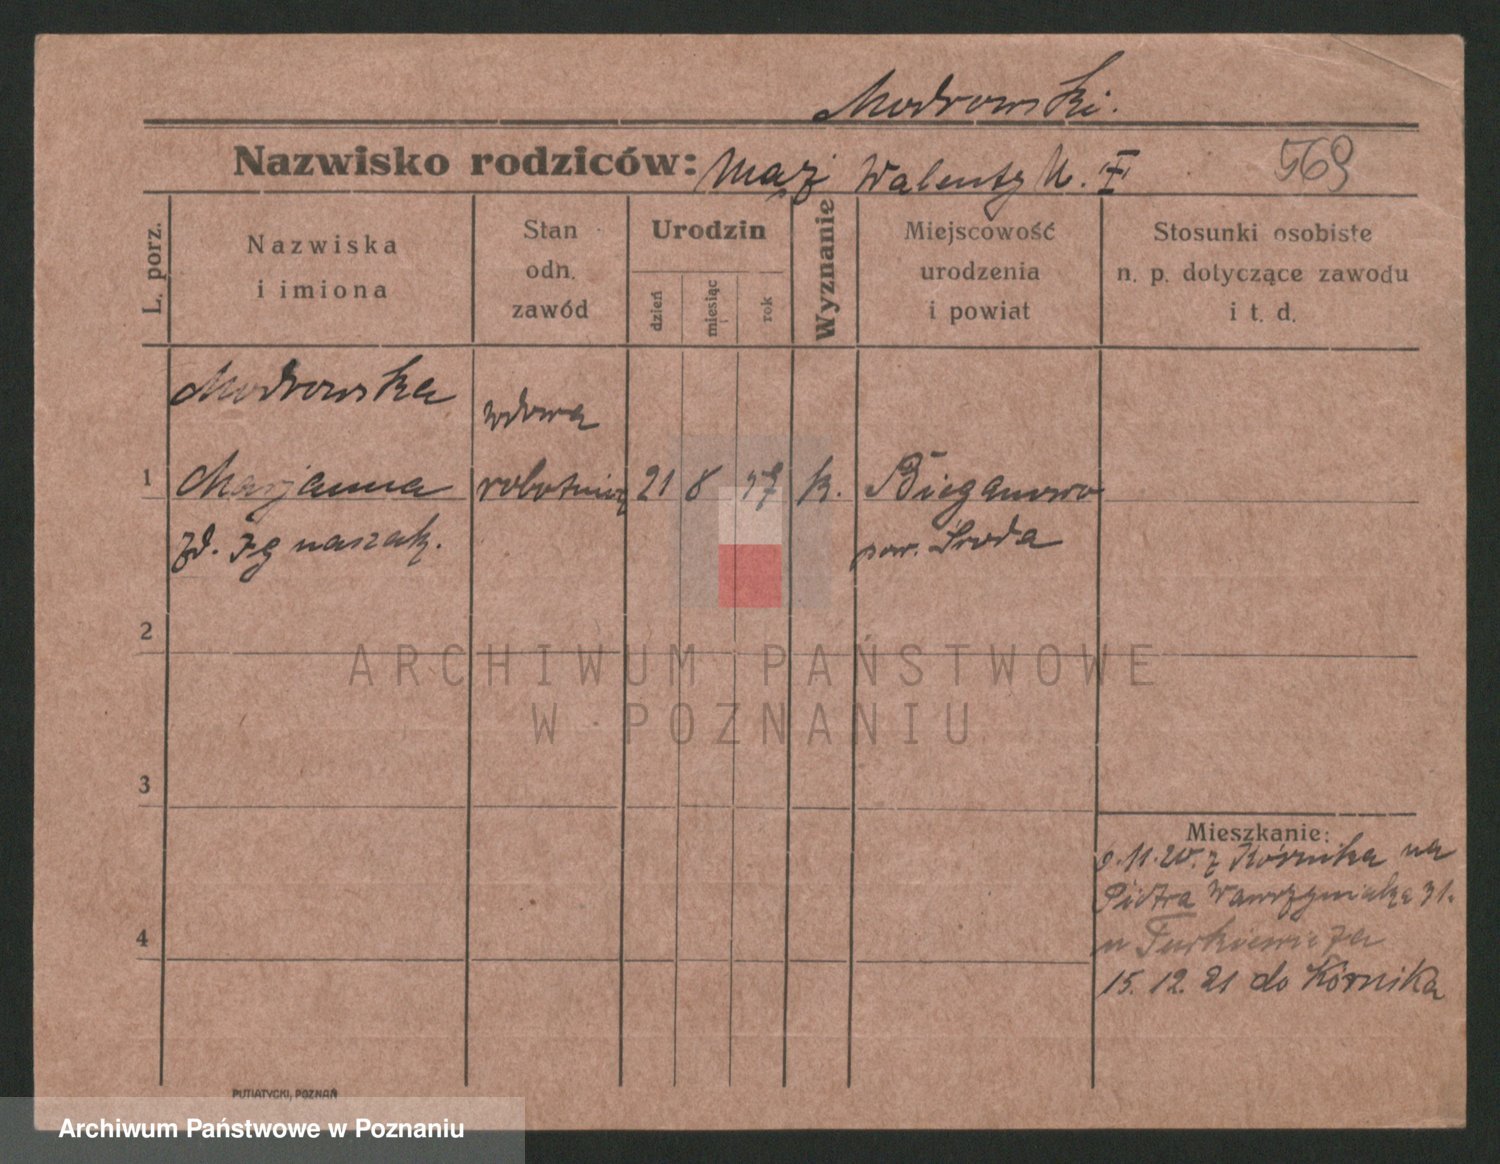 Modrowski.
Nazwisko rodziców: mąż Walenty M. I
569
L. porz.
Nazwiska
i imiona
Stan
odn.
zawód
Urodzin
dzień
miesiąc
rok
Wyznanie
Miejscowość
urodzenia
i powiat
Stosunki osobiste
n. p. dotyczące zawodu
i t. d.
Modrowska
wdowa
1 Marjanna robotnica 21 8 57 k. Bieganowo
zd. Ignaszak. pow. Środa
2
3
4
Mieszkanie:
9.11.20. z Kórnika na
Piotra Wawrzyniaka 31.
u Turkiewicza
15. 12. 21 do Kórnika
ARCHIWUM PAŃSTWOWE
W POZNANIU
PUTIATYCKI, POZNAŃ
Archiwum Państwowe w Poznaniu